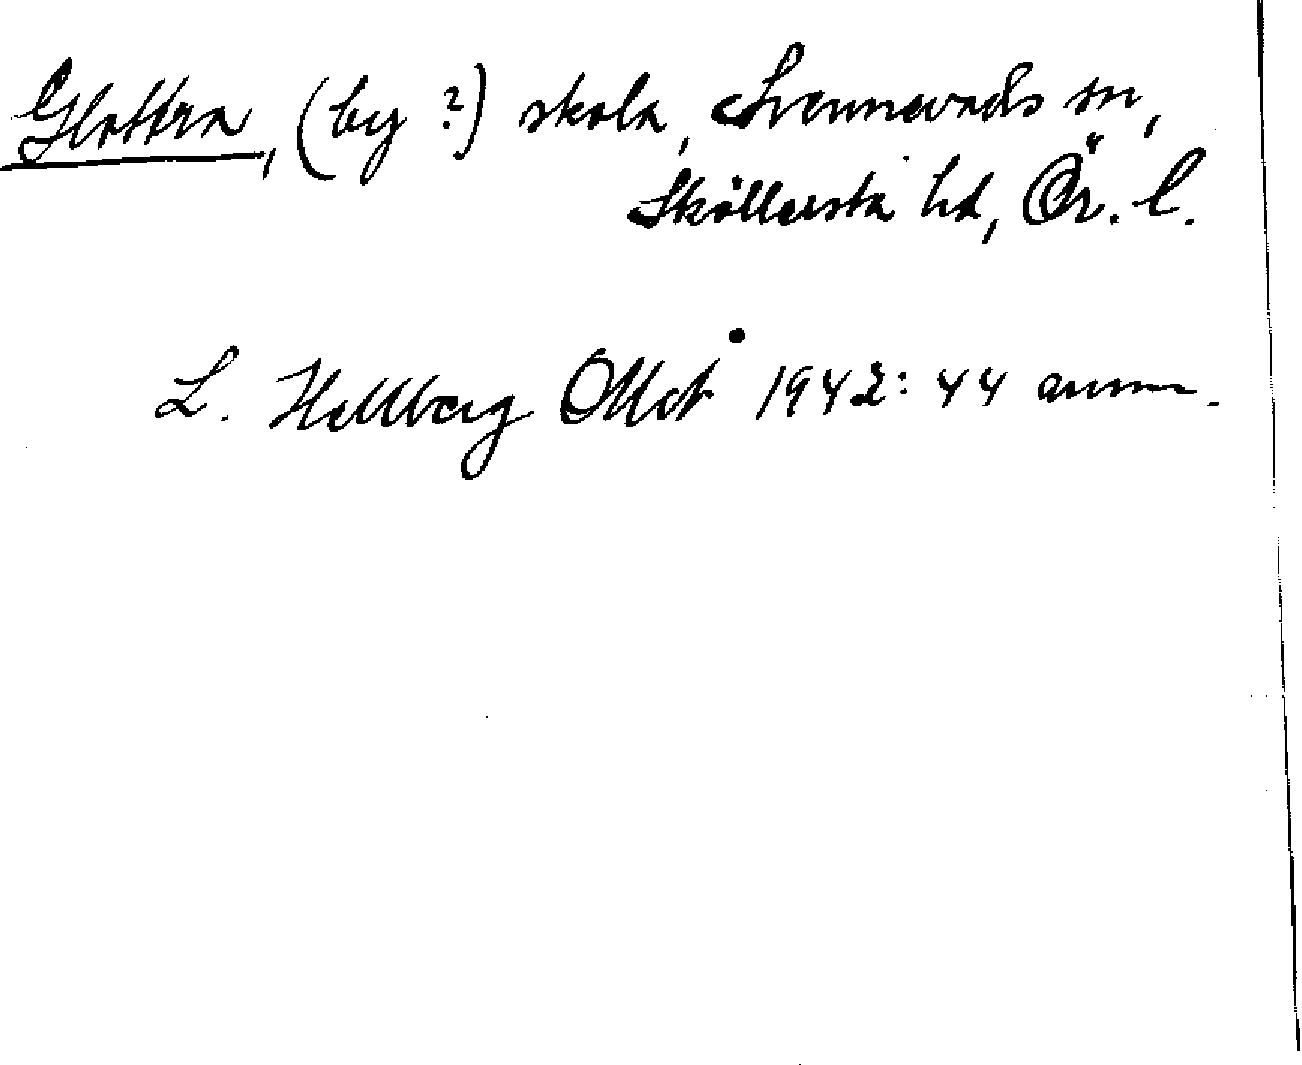 Glottra, (by ?) skola, Svennevads sn,
Sköllersta hd, Ör. l.
L. Hellberg OUÅ 1942: 44 anm.